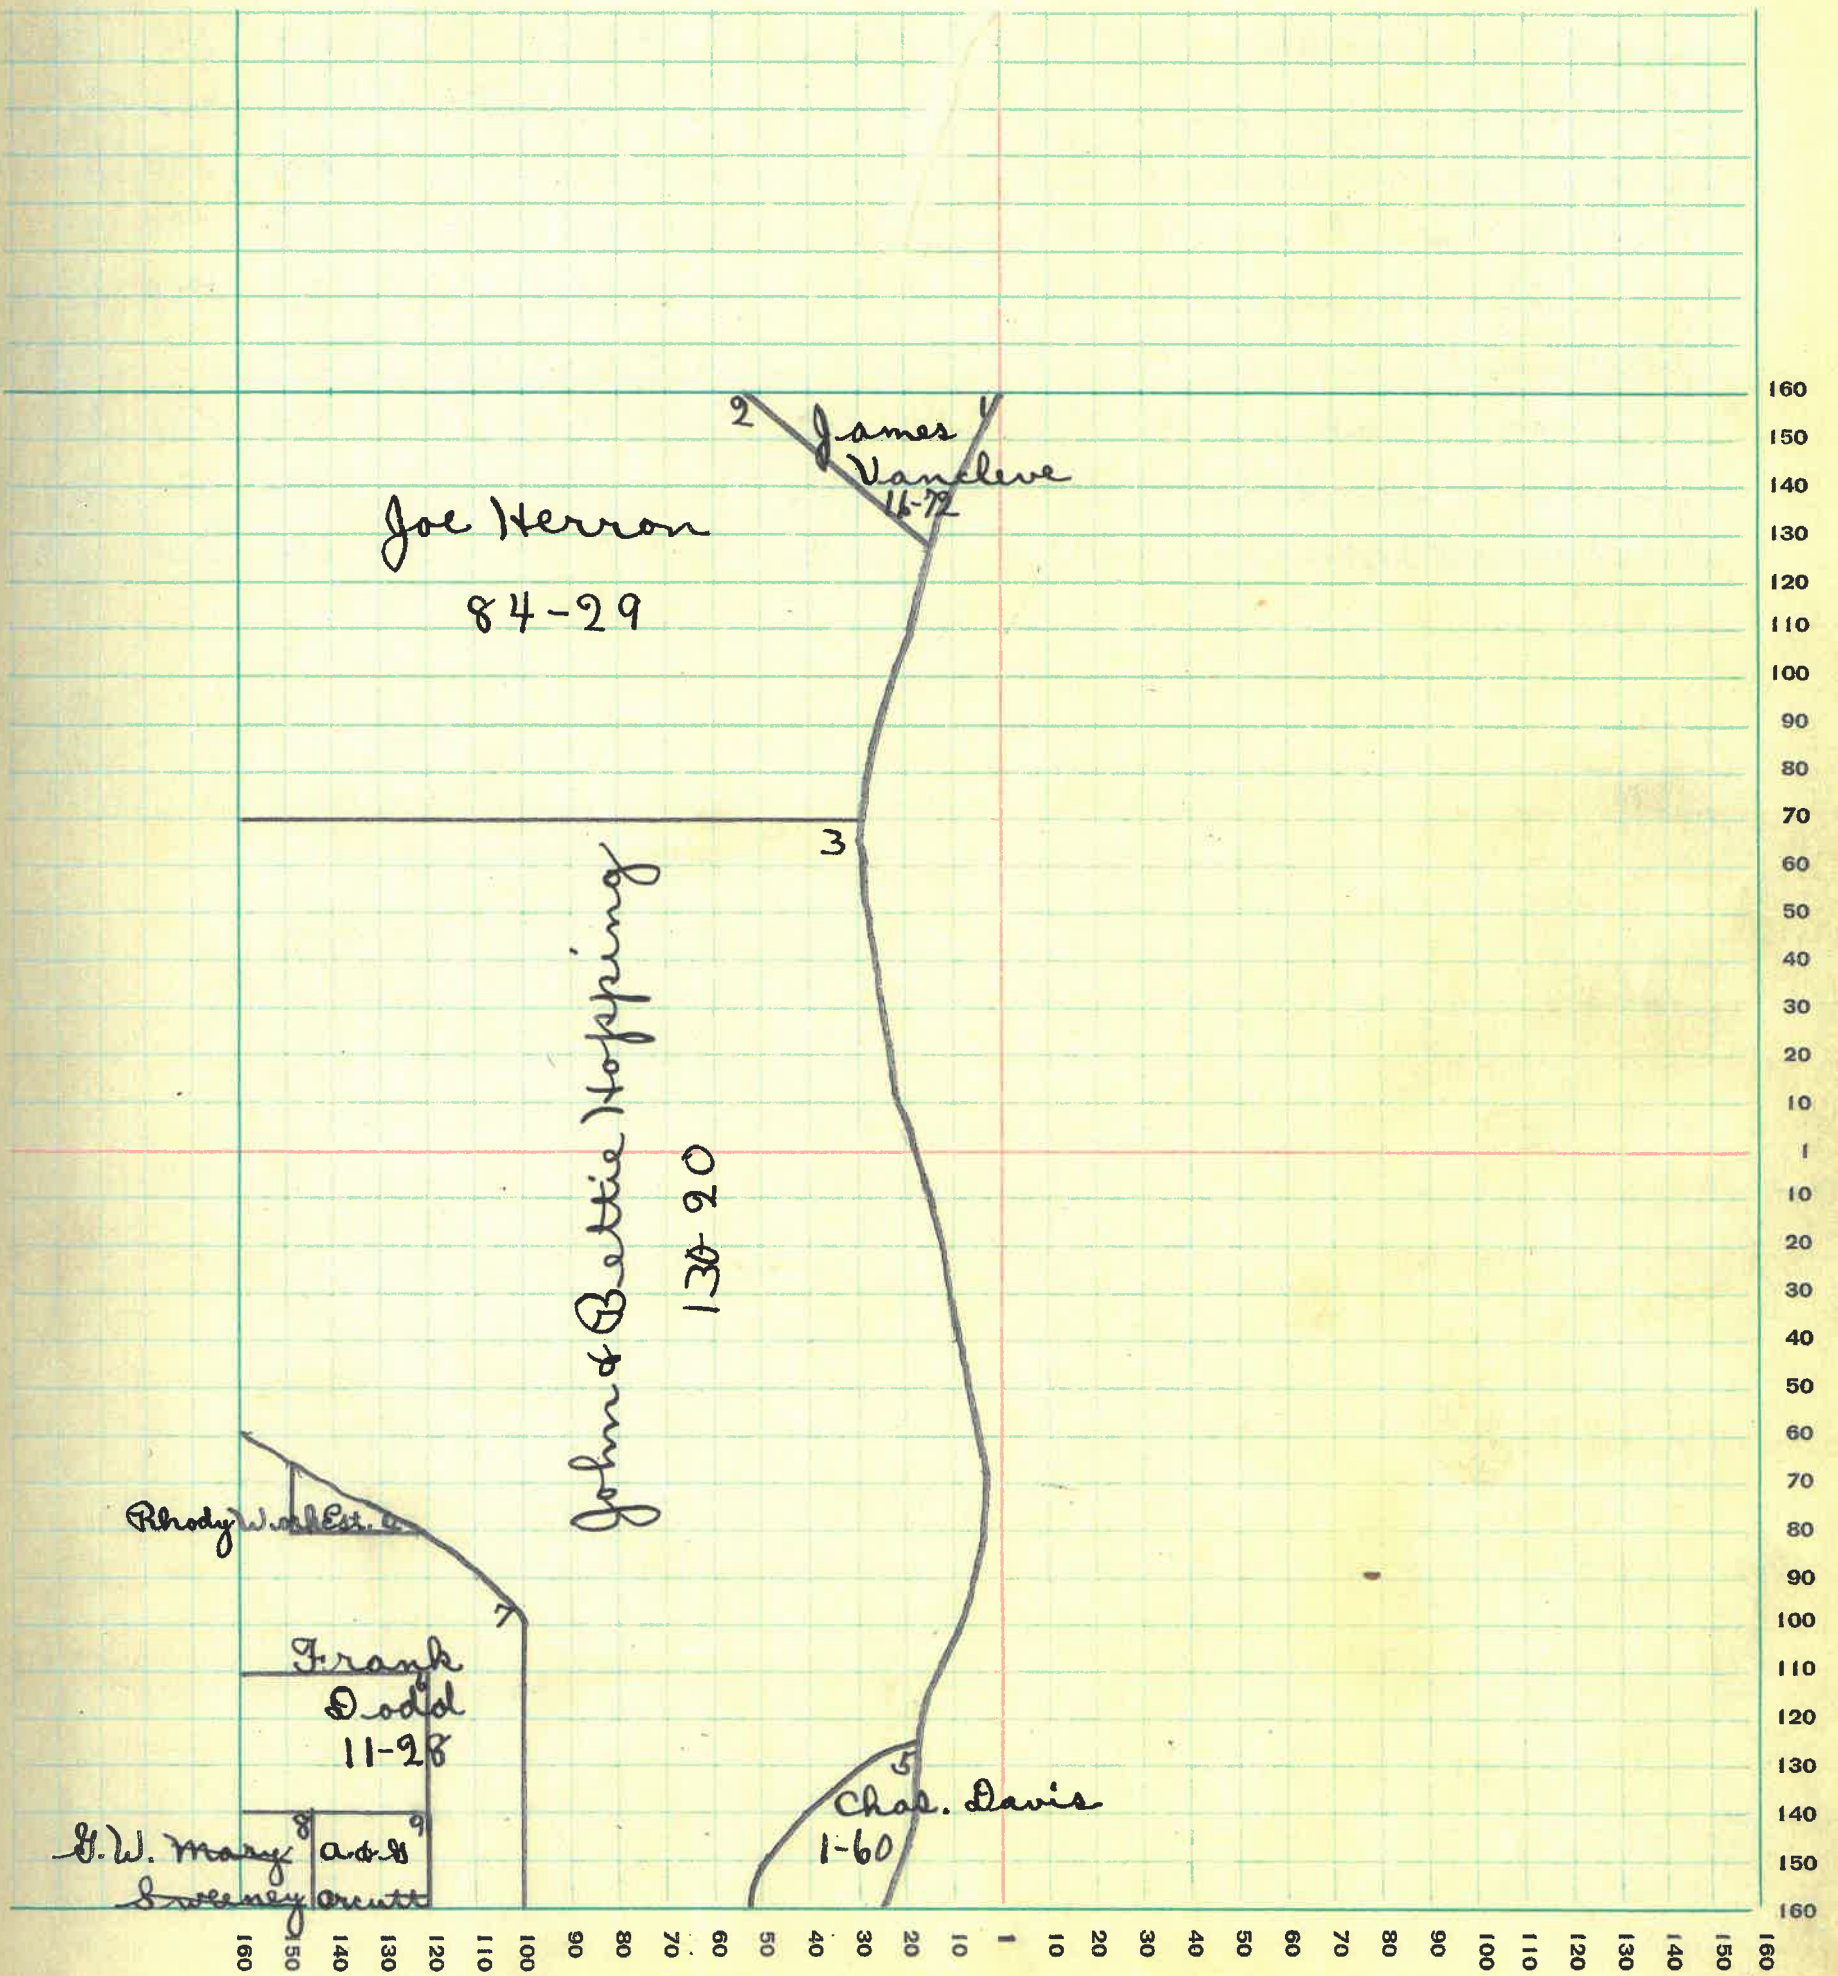 2
1
James
Vancleve
16-72
Joe Herron
84-29
3
John & Bettie Hopping
130-20
Rhody Work Est.
7
Frank
6
Dodd
11-28
5
Chas. Davis
1-60
8
9
G.W. Mary
Sweeney
A. & G
Orcutt
160
150
140
130
120
110
100
90
80
70
60
50
40
30
20
10
1
10
20
30
40
50
60
70
80
90
100
110
120
130
140
150
160
160 150 140 130 120 110 100 90 80 70 60 50 40 30 20 10 1 10 20 30 40 50 60 70 80 90 100 110 120 130 140 150 160